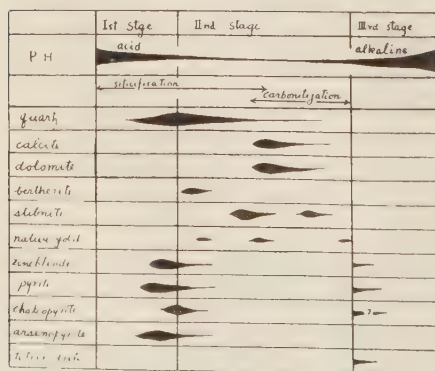 Ist stge IInd stage IIIrd stage
PH acid alkaline
silicification
carbonitization
quarh
calcite
dolomite
bertherite
stibnite
native gold
zincblende
pyrite
chalcopyrite ?
arsenopyrite